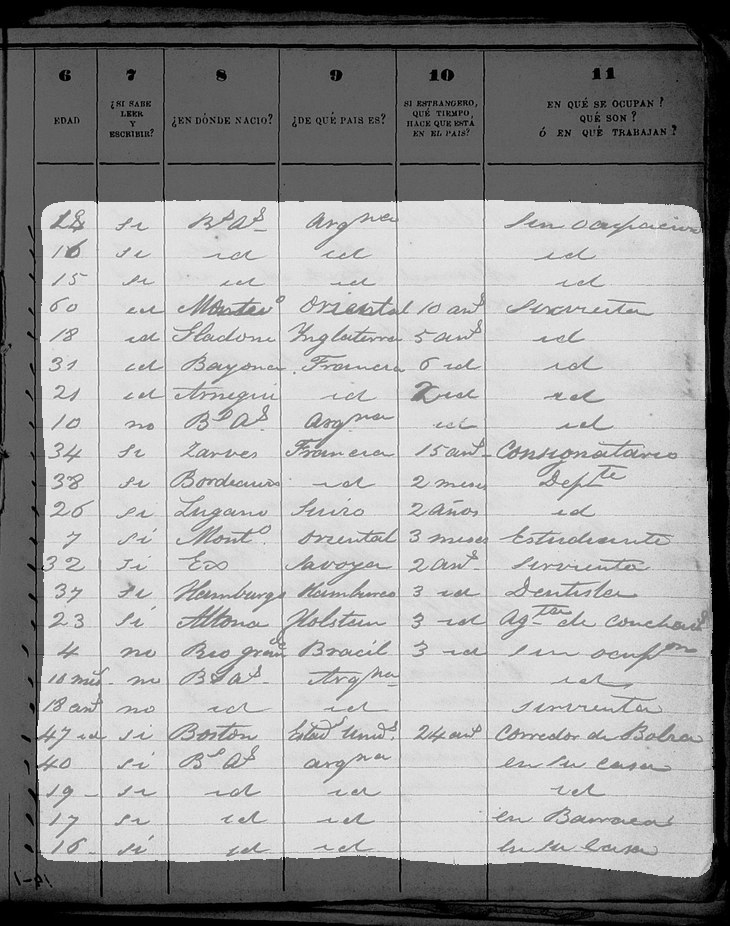 6 7 8 9 10 11
EDAD ¿SI SABE LEER Y ESCRIBIR? ¿EN DÓNDE NACIO? ¿DE QUÉ PAIS ES? SI ESTRANGERO, QUÉ TIEMPO, HACE QUE ESTÁ EN EL PAIS? EN QUÉ SE OCUPAN? QUÉ SON? Ó EN QUÉ TRABAJAN?
si Bs As Argna Sin ocupacion
16 si id id id
15 si id id id
60 id Montevo Oriental 10 ans Sirvienta
18 id Ynglaterra 5 ans id
31 id Bayona Francia 6 id id
21 id id 2 id id
10 no Bs As Argna id id
34 si Francia 15 ans Consignatario
38 si Bordeaux id 2 meses Depte
26 si Lugano Suizo 2 años id
7 si Monto Oriental 3 meses Estudiante
32 si Ex Savoya 2 ans Sirvienta
37 si Hamburgo Hamburgo 3 id Dentista
23 si Altona Holstein 3 id
4 no Rio grande Bracil 3 id Sin ocupon
10 mes no Bs As Argna id
18 ans no id id Sirvienta
47 id si Boston Estads Unids 24 ans Corredor de Bolsa
40 si Bs As Argna en su casa
19 si id id id
17 si id id en Barraca
16 si id id en su casa